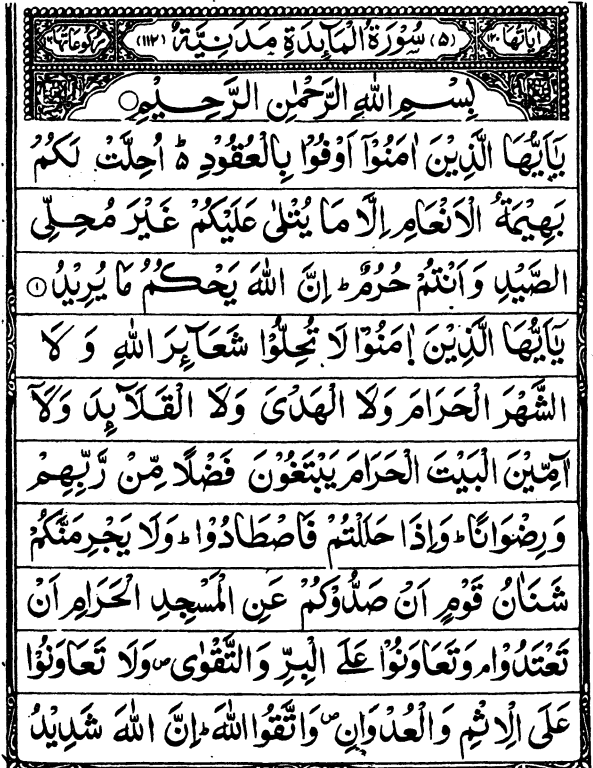 اٰيَاتُهَا ١٢٠ (٥) سُوْرَةُ الْمَآئِدَةِ مَدَنِيَّةٌ (١١٢) رُكُوْعَاتُهَا ١٦
بِسْمِ اللّٰهِ الرَّحْمٰنِ الرَّحِيْمِ ○
يٰۤاَيُّهَا الَّذِيْنَ اٰمَنُوْۤا اَوْفُوْا بِالْعُقُوْدِ ؕ اُحِلَّتْ لَكُمْ
بَهِيْمَةُ الْاَنْعَامِ اِلَّا مَا يُتْلٰى عَلَيْكُمْ غَيْرَ مُحِلِّى
الصَّيْدِ وَاَنْتُمْ حُرُمٌ ؕ اِنَّ اللّٰهَ يَحْكُمُ مَا يُرِيْدُ ۝١
يٰۤاَيُّهَا الَّذِيْنَ اٰمَنُوْا لَا تُحِلُّوْا شَعَآئِرَ اللّٰهِ وَلَا
الشَّهْرَ الْحَرَامَ وَلَا الْهَدْىَ وَلَا الْقَلَآئِدَ وَلَاۤ
اٰمِّيْنَ الْبَيْتَ الْحَرَامَ يَبْتَغُوْنَ فَضْلًا مِّنْ رَّبِّهِمْ
وَرِضْوَانًا ؕ وَاِذَا حَلَلْتُمْ فَاصْطَادُوْا ؕ وَلَا يَجْرِمَنَّكُمْ
شَنَاٰنُ قَوْمٍ اَنْ صَدُّوْكُمْ عَنِ الْمَسْجِدِ الْحَرَامِ اَنْ
تَعْتَدُوْا ۘ وَتَعَاوَنُوْا عَلَى الْبِرِّ وَالتَّقْوٰى ۖ وَلَا تَعَاوَنُوْا
عَلَى الْاِثْمِ وَالْعُدْوَانِ ۖ وَاتَّقُوا اللّٰهَ ؕ اِنَّ اللّٰهَ شَدِيْدُ